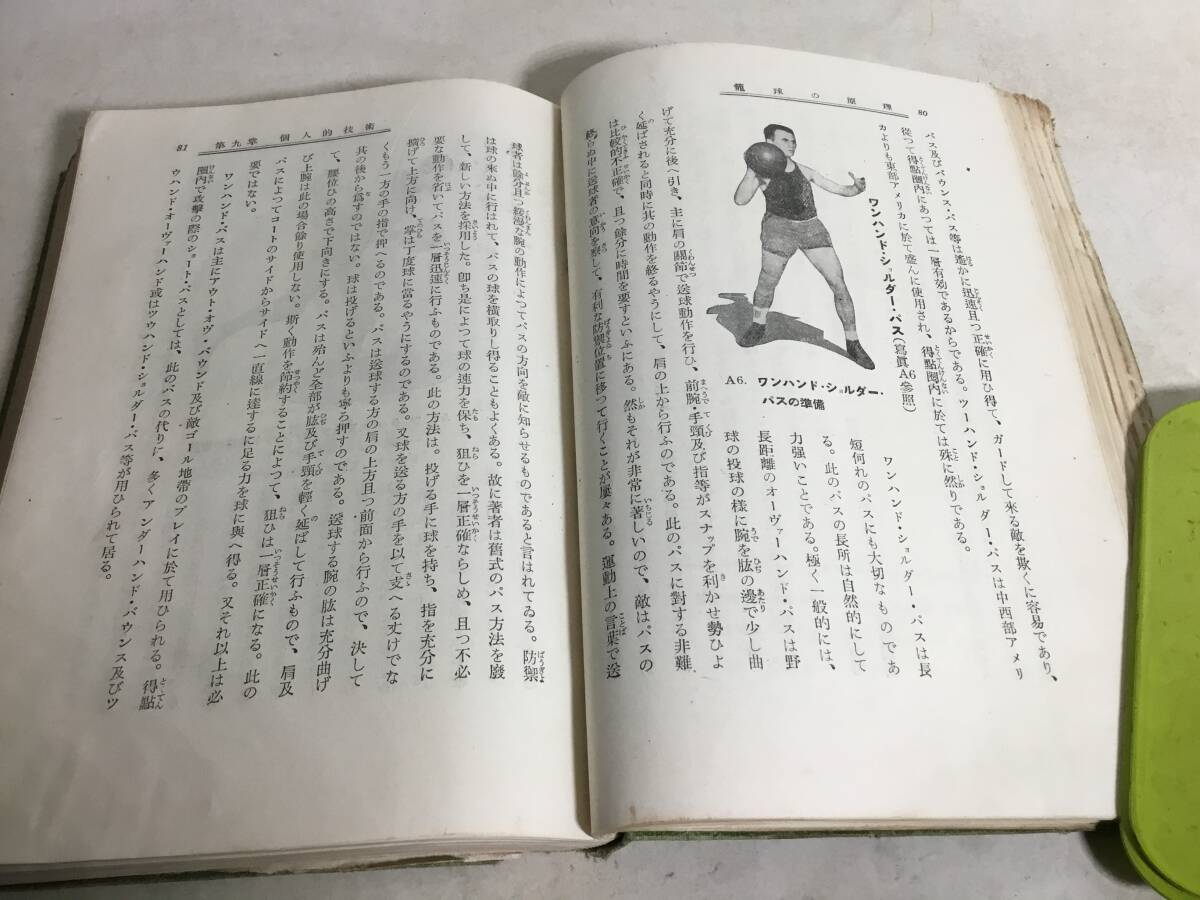 籠球の原理
80
パス及びバウンス・パス等は遙かに迅速且つ正確に用ひ得て、ガードして來る敵を欺くに容易であり、
從つて得點圈內にあつては一層有効であるからである。ツーハンド・ショルダー・パスは中西部アメリ
カよりも東部アメリカに於て盛んに使用され、得點圈內に於ては殊に然りである。
ワンハンド・ショルダー・パス(寫眞A6參照)
A6. ワンハンド・ショルダー・
パスの準備
ワンハンド・ショルダー・パスは長
短何れのパスにも大切なものであ
る。此のパスの長所は自然的にして
力强いことである。極く一般的には、
長距離のオーヴァーハンド・パスは野
球の投球の樣に腕を肱の邊で少し曲
げて充分に後へ引き、主に肩の關節で送球動作を行ひ、前腕・手頸及び指等がスナップを利かせ勢ひよ
く延ばされると同時に其の動作を終るやうにして、肩の上から行ふのである。此のパスに對する非難
は比較的不正確で、且つ餘分に時間を要すといふにある。然もそれが非常に著しいので、敵はパスの
終らぬ中に送球者の意向を察して、有利な防禦位置に移つて行くことが屢々ある。運動上の言葉で送
第九章 個人的技術
81
球者は餘分且つ緩漫な腕の動作によつてパスの方向を敵に知らせるものであると言はれてゐる。防禦
は球の來ぬ中に行はれて、パスの球を橫取りし得ることもよくある。故に著者は舊式のパス方法を廢
して、新しい方法を採用した。卽ち是によつて球の速力を保ち、狙ひを一層正確ならしめ、且つ不必
要な動作を省いてパスを一層迅速に行ふものである。此の方法は。投げる手に球を持ち、指を充分に
擴げて上方に向け、掌は丁度球に當るやうにするのである。又球を送る方の手を以て支へる丈けでな
くもう一方の手の指で押へるのである。パスは送球する方の肩の上方且つ前面から行ふので、決して
其の後から爲すのではない。球は投げるといふよりも寧ろ押すのである。送球する腕の肱は充分曲げ
て、腰位ひの高さで下向きにする。パスは殆んど全部が肱及び手頸を輕く延ばして行ふもので、肩及
び上腕は此の場合餘り使用しない。斯く動作を節約することによつて、狙ひは一層正確になる。此の
パスによつてコートのサイドからサイドへ一直線に達するに足る力を球に與へ得る。又それ以上は必
要ではない。
ワンハンド・パスは主にアウト・オヴ・バウンド及び敵ゴール地帶のプレイに於て用ひられる。得點
圈內で攻擊の際のショート・パスとしては、此のパスの代りに、多くアンダーハンド・バウンス及びツ
ウハンド・オーヴァーハンド或はツウハンド・ショルダー・パス等が用ひられて居る。